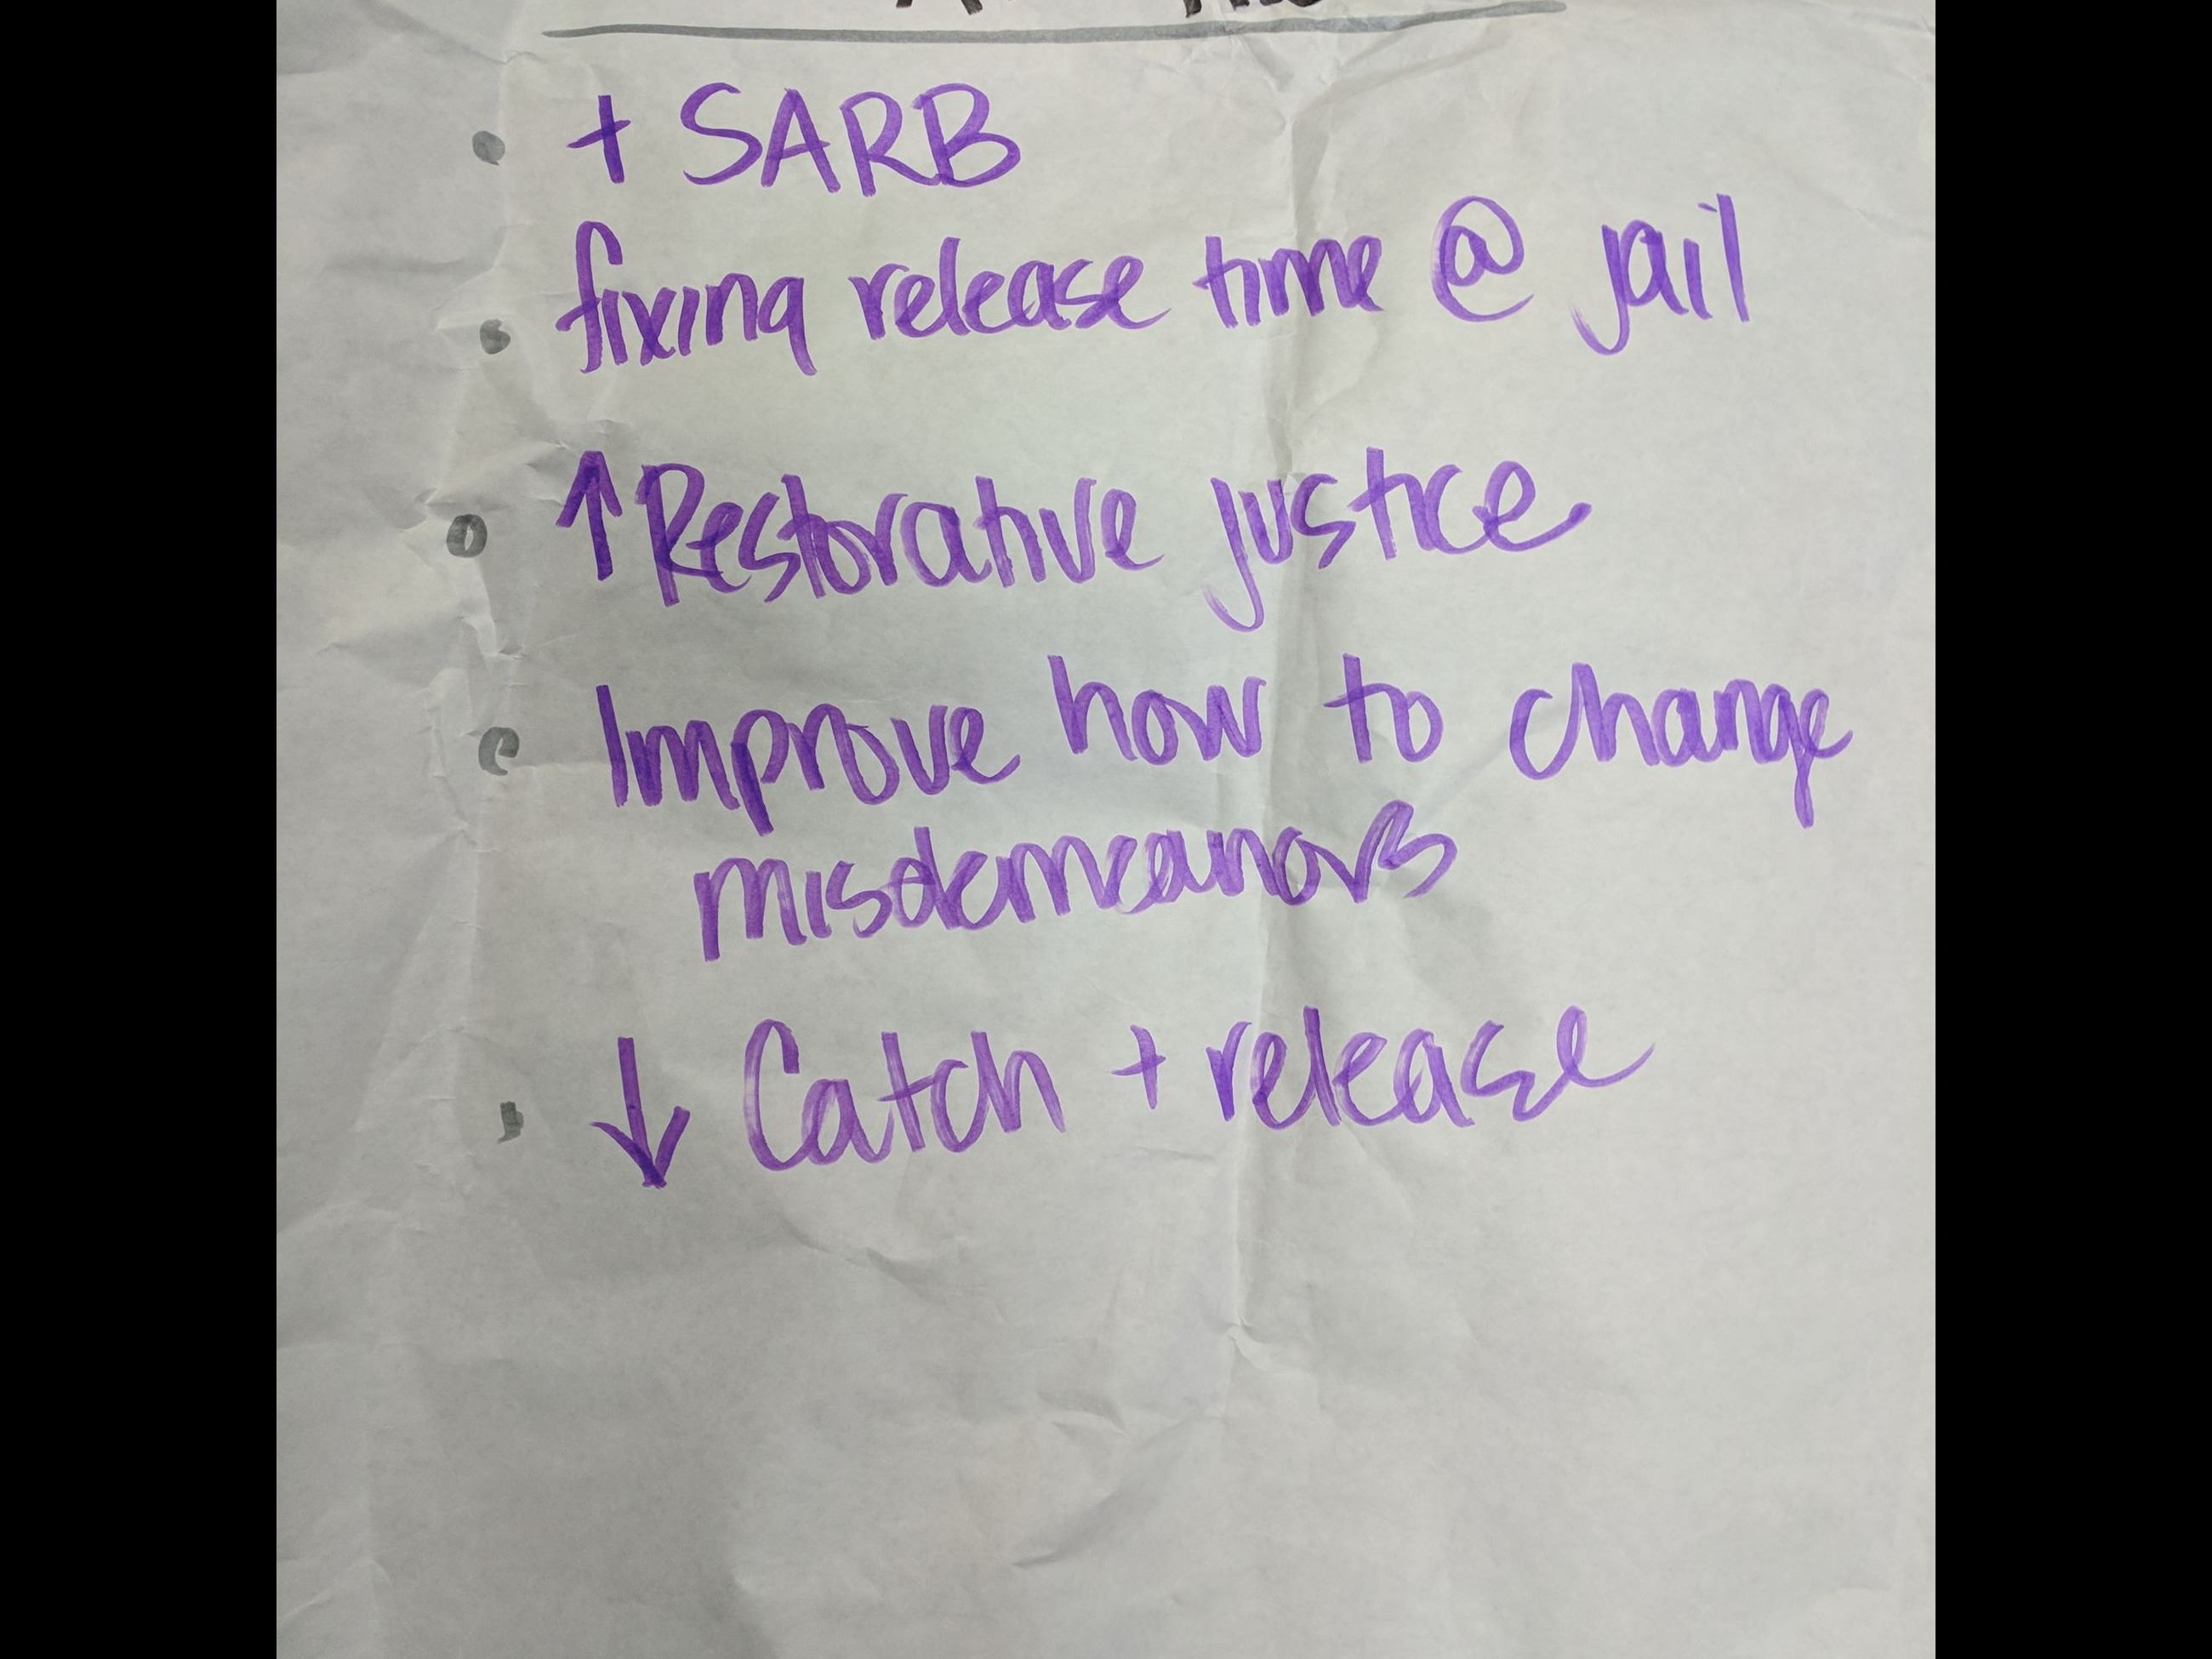 • + SARB
• fixing release time @ jail
• ↑ Restorative justice
• Improve how to change
misdemeanors
• ↓ Catch + release